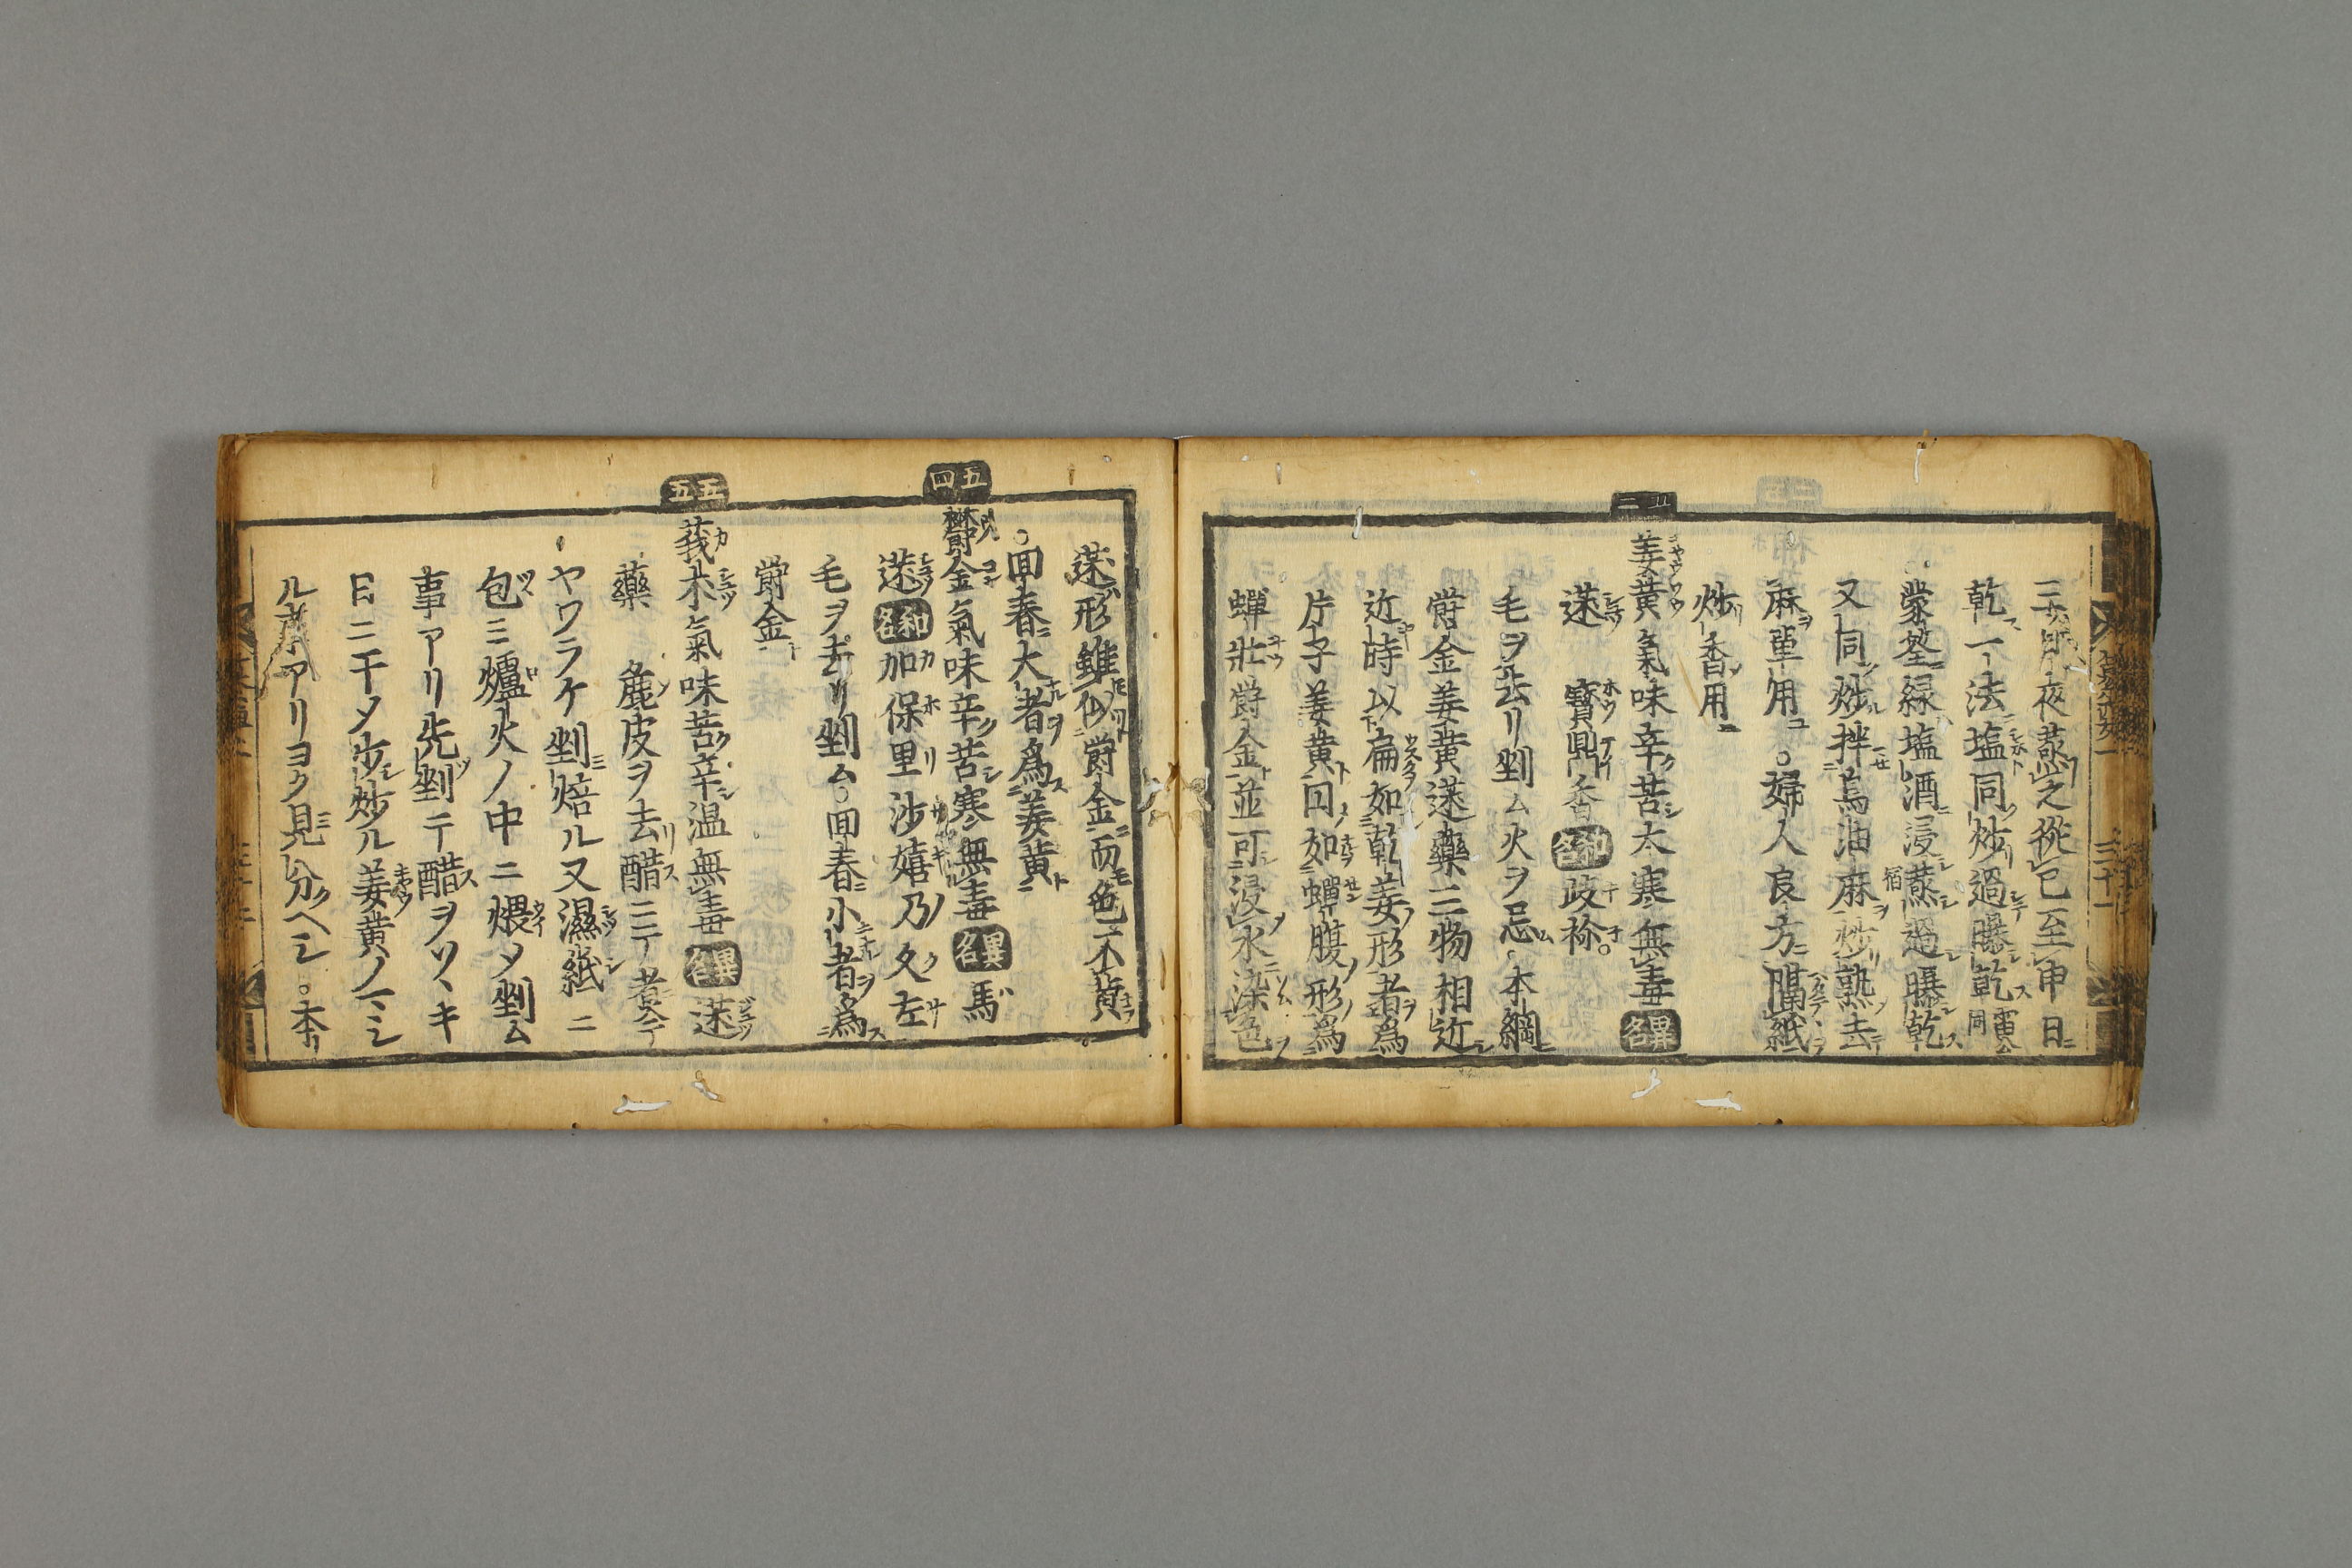 夜蒸之從巳至申日
乾一法塩同炒過曝乾
蒙筌緑塩酒浸蒸過曝乾
又同炒拌烏油麻炒熟去
麻單用○婦人良方隔紙
炒香用
姜黄氣味辛苦大寒無毒異名
蒁 寳鼎香 和名 岐祢
毛ヲ去リ剉ム火ヲ忌ム本綱
欝金姜黄蒁藥三物相近
近時以扁如乾姜形者爲
片子姜黄ト曰如蟬腹形爲
蟬肚欝金ト並可浸水染色
蒁形雖似欝金而色不黄
○回春大者爲姜黄
五四
欝金氣味辛苦寒無毒異名馬
蒁 和名 加保里沙嬉乃久左
毛ヲ去リ剉ム○回春小者爲
欝金
五五
莪朮氣味苦辛温無毒異名蒁
藥 麁皮ヲ去醋ニテ煮テ
ヤワラケ剉焙ル又濕紙ニ
包ミ爐火ノ中ニ煨メ剉ム
事アリ先剉テ醋ヲソヽキ
日ニ干メ少炒ル姜黄ノ
アリヨク見分ヘシ○本